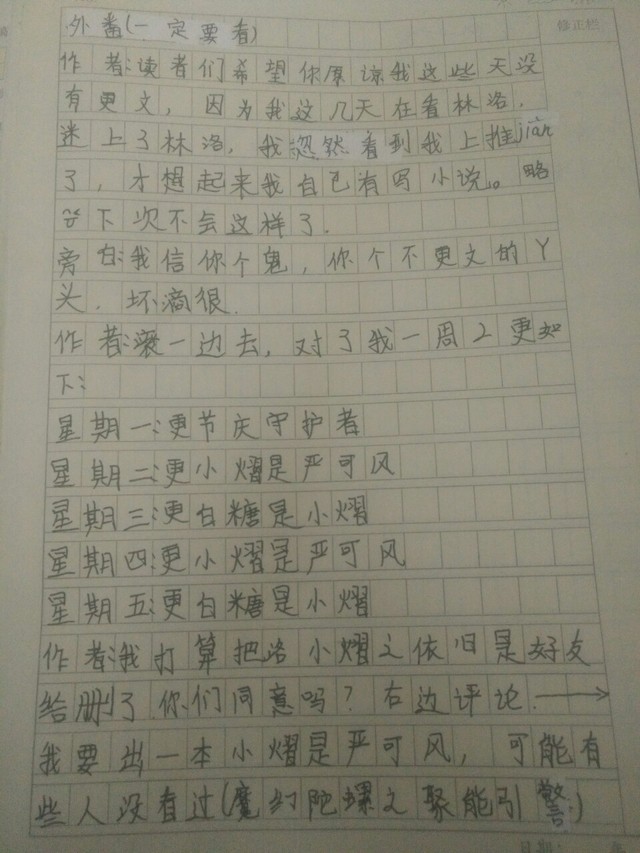 外番(一定要看)
修正栏
作者:读者们希望你原谅我这些天没
有更文，因为我这几天在看林洛，
迷上了林洛，我忽然看到我上推jiàn
了，才想起来我自己有写小说。。略
下次不会这样了.
旁白:我信你个鬼，你个不更文的丫
头.坏滴很.
作者:滚一边去，对了我一周之更如
下:
星期一:更节庆守护者
星期二:更小熠是严可风
星期三:更白糖是小熠
星期四:更小熠是严可风
星期五:更白糖是小熠
作者:我打算把洛小熠之依旧是好友
给删了你们同意吗？右边评论.→
我要出一本小熠是严可风，可能有
些人没看过(魔幻陀螺之聚能引擎)
日期: